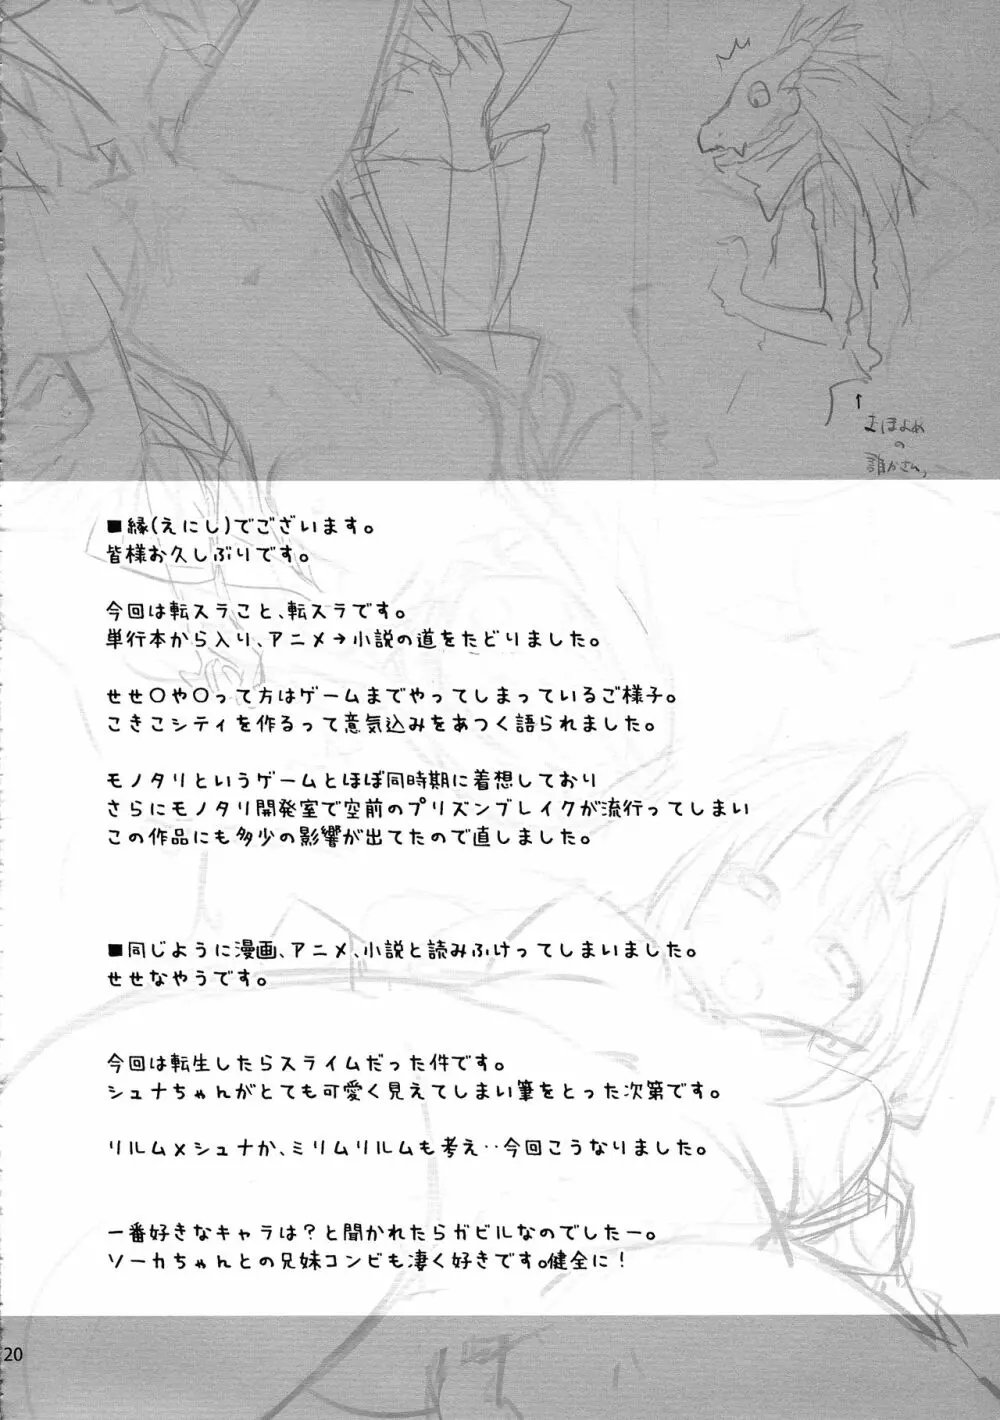 ↑
まほよめ
の
誰かさん
■縁(えにし)でございます。
皆様お久しぶりです。
今回は転スラこと、転スラです。
単行本から入り、アニメ→小説の道をたどりました。
せせ〇や〇って方はゲームまでやってしまっているご様子。
こきこシティを作るって意気込みをあつく語られました。
モノタリというゲームとほぼ同時期に着想しており
さらにモノタリ開発室で空前のプリズンブレイクが流行ってしまい
この作品にも多少の影響が出てたので直しました。
■同じように漫画、アニメ、小説と読みふけってしまいました。
せせなやうです。
今回は転生したらスライムだった件です。
シュナちゃんがとても可愛く見えてしまい筆をとった次第です。
リルム×シュナか、ミリムリルムも考え‥今回こうなりました。
一番好きなキャラは?と聞かれたらガビルなのでしたー。
ソーカちゃんとの兄妹コンビも凄く好きです。健全に!
20